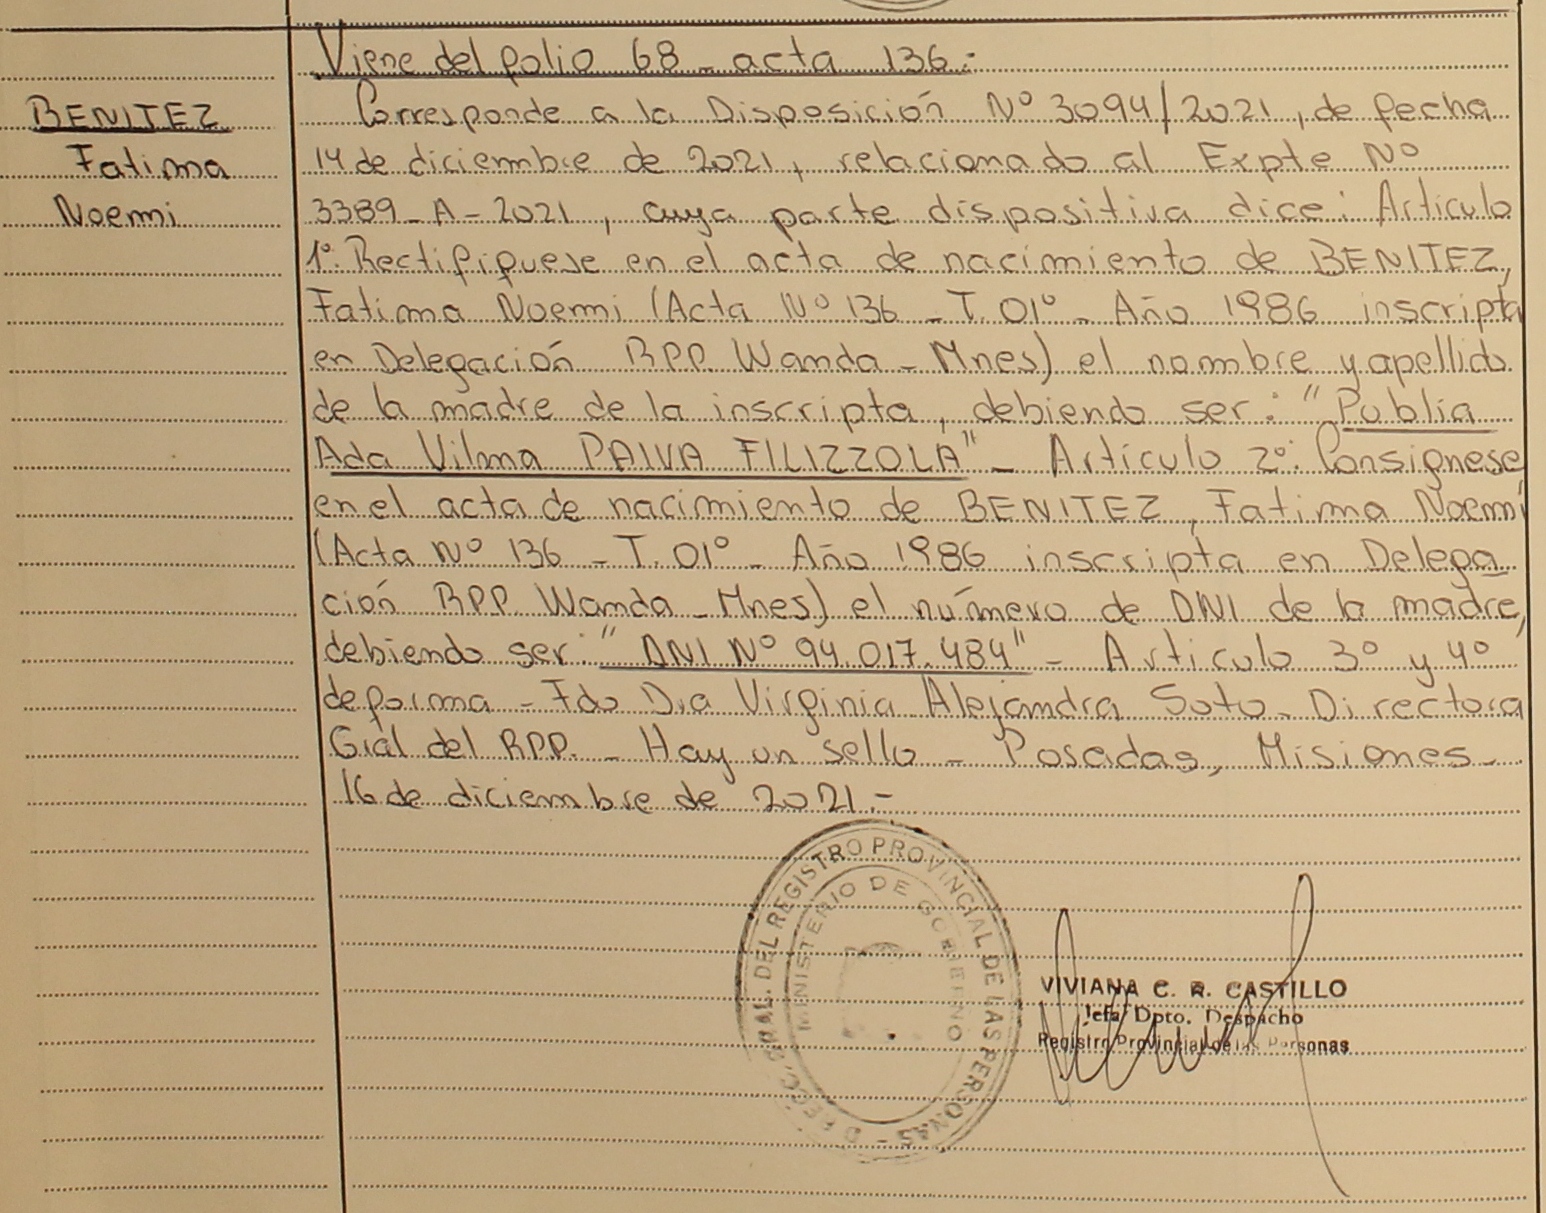 Viene del folio 68 - acta 136.-
BENITEZ
Fatima
Noemi
Corresponde a la Disposición Nº 3094/2021, de fecha
14 de diciembre de 2021, relacionado al Expte Nº
3389-A-2021, cuya parte dispositiva dice: Articulo
1º: Rectifiquese en el acta de nacimiento de BENITEZ,
Fatima Noemi (Acta Nº 136 - T. 01º - Año 1986 inscripta
en Delegación RPP. Wanda - Mnes) el nombre y apellido
de la madre de la inscripta, debiendo ser: "Publia
Ada Vilma PAIVA FILIZZOLA" - Articulo 2º: Consignese
en el acta de nacimiento de BENITEZ, Fatima Noemi
(Acta Nº 136 - T. 01º - Año 1986 inscripta en Delega
ción RPP. Wanda - Mnes) el número de DNI de la madre,
debiendo ser: "DNI Nº 94.017.484" - Articulo 3º y 4º
de forma - Fdo Dra Virginia Alejandra Soto - Directora
Gral del RPP. - Hay un sello - Posadas, Misiones -
16 de diciembre de 2021.-
DIRECC. GRAL. DEL REGISTRO PROVINCIAL DE LAS PERSONAS -
MINISTERIO DE GOBIERNO
VIVIANA C. R. CASTILLO
Jefa Dpto. Despacho
Registro Provincial de las Personas